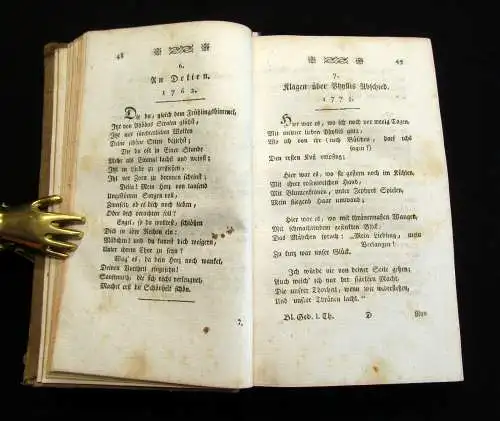 48
6.
An Delien.
1762.
Die du, gleich dem Frühlingshimmel,
Itzt von Phöbus Stralen glühst,
Itzt mit fürchterlichen Wolken
Deine schöne Stirn beziehst;
Die du oft in Einer Stunde
Mehr als Einmal lachst und weinst;
Itzt in Liebe zu zerfließen,
Itzt vor Zorn zu brennen scheinst,
Delia! Mein Herz von tausend
Ungestümen Sorgen voll,
Zweifelt, ob es dich noch lieben,
Oder dich verachten soll?
Engel, so du wolltest, schlößen
Dich in ihre Reihen ein:
Mädchen! und du kannst dich weigern,
Unter ihrem Chor zu seyn?
Wag' es, da dein Herz noch wanket,
Deinen Vortheil einzusehn!
Sanftmuth, die sich nicht verleugnet,
Macht erst die Schönheit schön.
7.
49
7.
Klagen über Phyllis Abschied.
1771.
Hier war es, wo ich noch vor wenig Tagen,
Mit meiner lieben Phyllis ganz;
Wo ich von ihr (euch Büschen, darf ichs
sagen?)
Den ersten Kuß empfieng;
Hier war es, wo sie gestern noch im Kühlen,
Mit ihrer rosenweichen Hand,
Mit Blumenkronen, unter Zephyrs Spielen,
Mein fliegend Haar umwand;
Hier war es, wo mit thränennassen Wangen,
Mit schmachtendem gesenkten Blick
Das Mädchen sprach: „Mein Liebling, mein
Verlangen!
Zu kurz war unser Glück.
Ich würde nie von deiner Seite gehen;
Auch weich' ich nur der stärkern Macht,
Die unsrer Thorheit, wenn wir widerstehen,
Und unsrer Thränen lacht."
Bl. Ged. I. Th. D Nun